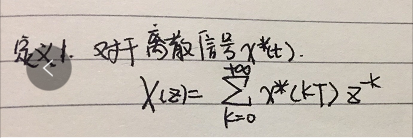 定义1. 对于离散信号x*(t).
X(z)= ∑_{k=0}^{+∞} x*(kT) z^{-k}